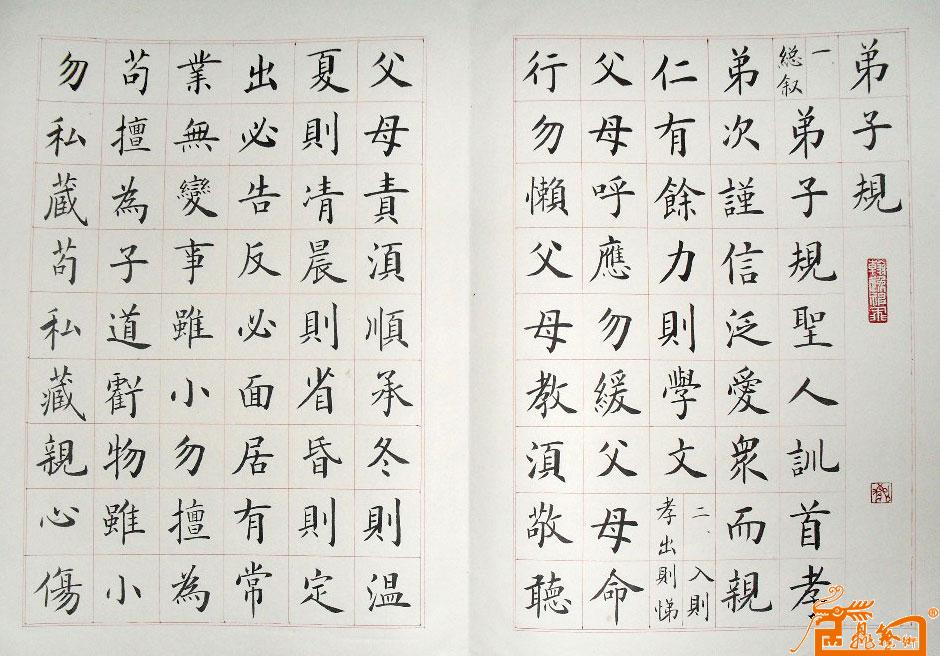 弟子規
一、総叙
弟子規聖人訓首孝
弟次謹信泛愛衆而親
仁有餘力則學文
二、入則
孝出則悌
父母呼應勿緩父母命
行勿懶父母教湏敬聽
父母責湏順承冬則温
夏則凊晨則省昏則定
出必告反必面居有常
業無變事雖小勿擅為
苟擅為子道虧物雖小
勿私蔵苟私藏親心傷